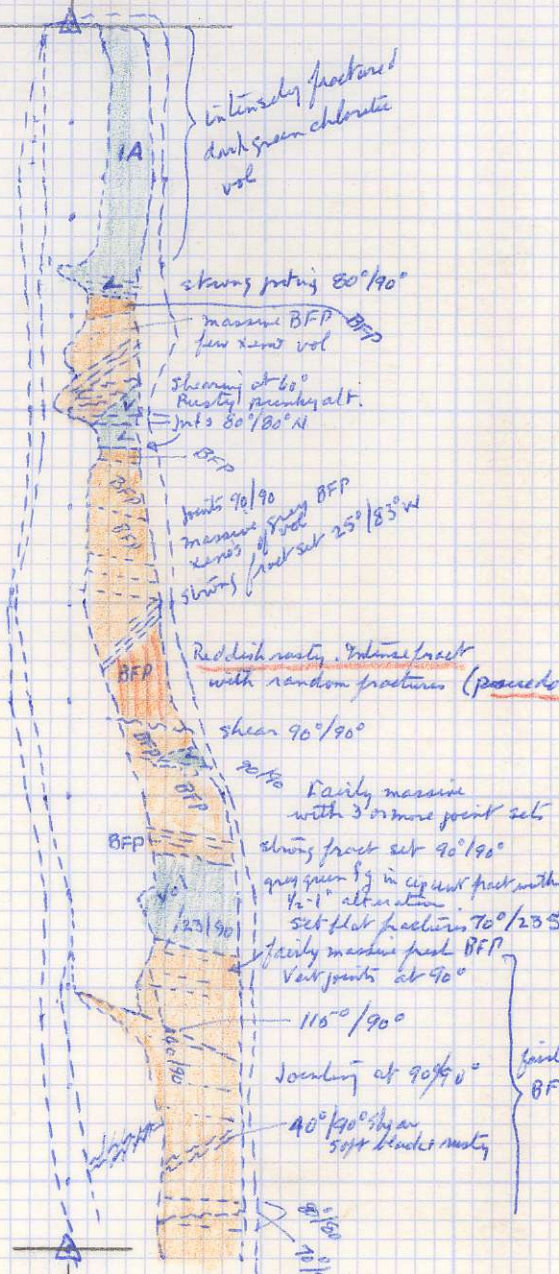 intensely fractured
dark green chloritic
vol
1A
strong jnting 80°/90°
BFP
massive BFP
few xeno vol
shearing at 60°
Rusty punky alt.
jnts 80°/80°N
BFP
BFP
BFP
joints 90/90
massive grey BFP
xenos of vol
strong fract set 25°/83°W
BFP
Reddish rusty. Intense fract
with random fractures
shear 90°/90°
BFP
90/90
BFP
Fairly massive
with 3 or more joint sets
BFP
strong fract set 90°/90°
grey green fg incipient fract with
1/2-1" alteration
set flat fractures 70°/23S
123/90
fairly massive fresh BFP
Vert joints at 90°
115°/90°
140/90
Jointing at 90°/90°
BF
40°/90° shear